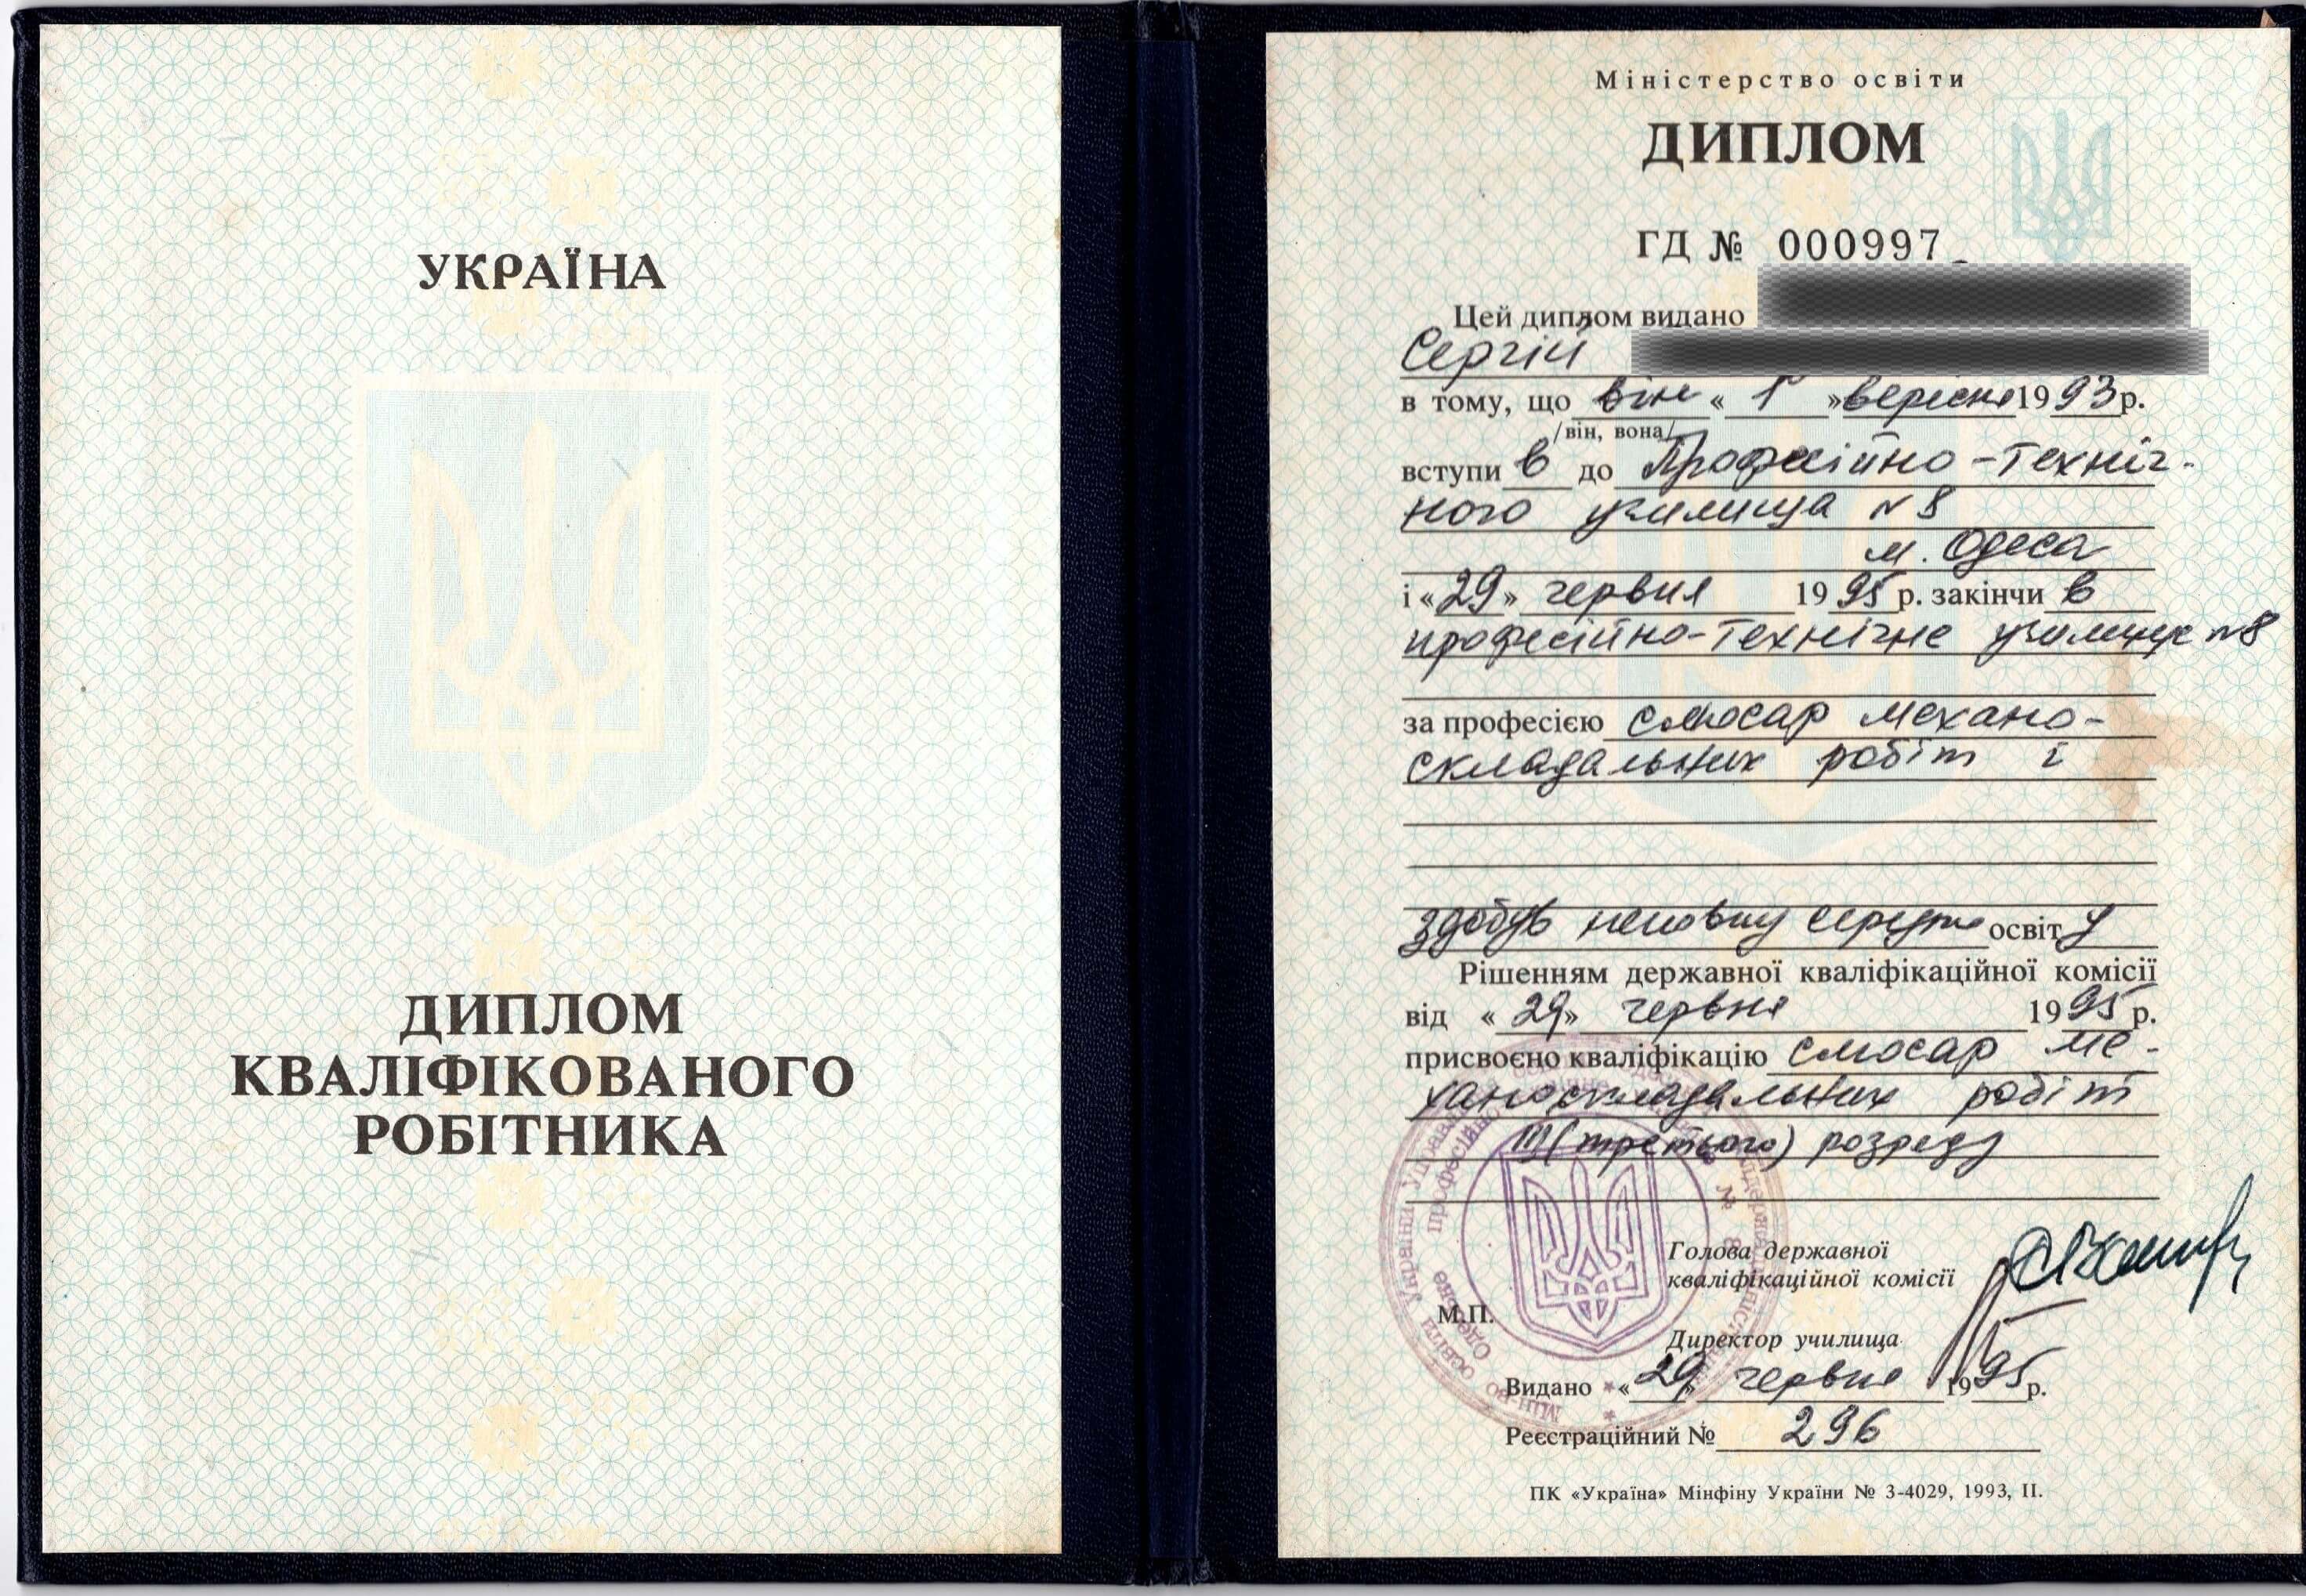 УКРАЇНА
ДИПЛОМ
КВАЛІФІКОВАНОГО
РОБІТНИКА
Міністерство освіти
ДИПЛОМ
ГД № 000997
Цей диплом видано
Сергій
в тому, що він « 1 » вересня 1993 р.
/він, вона/
вступив до Професійно-техніч-
ного училища №8
м. Одеса
і «29» червня 1995 р. закінчив
професійно-технічне училище №8
за професією слюсар механо-
складальних робіт
здобув неповну середню освіту
Рішенням державної кваліфікаційної комісії
від «29» червня 1995 р.
присвоєно кваліфікацію слюсар ме-
ханоскладальних робіт
III (третього) розряду
Голова державної
кваліфікаційної комісії
М.П.
Директор училища
Видано «29» червня 1995 р.
Реєстраційний № 296
ПК «Україна» Мінфіну України № 3-4029, 1993, II.